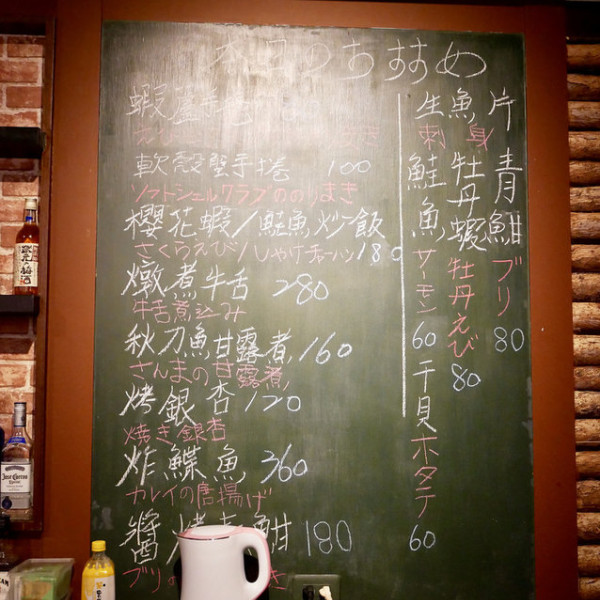 本日のおすすめ
蝦蘆
軟殼蟹手捲 100
ソフトシェルクラブののりまき
櫻花蝦/鮭魚炒飯
さくらえび/しゃけチャーハン 180
燉煮牛舌 280
牛舌煮込み
秋刀魚甘露煮 160
さんまの甘露煮
烤銀杏 120
焼き銀杏
炸鰈魚 360
カレイの唐揚げ
醬燒青魽 180
ブリ
生魚片
刺身
青魽 ブリ 80
牡丹蝦 牡丹えび 80
鮭魚 サーモン 60
干貝 ホタテ 60